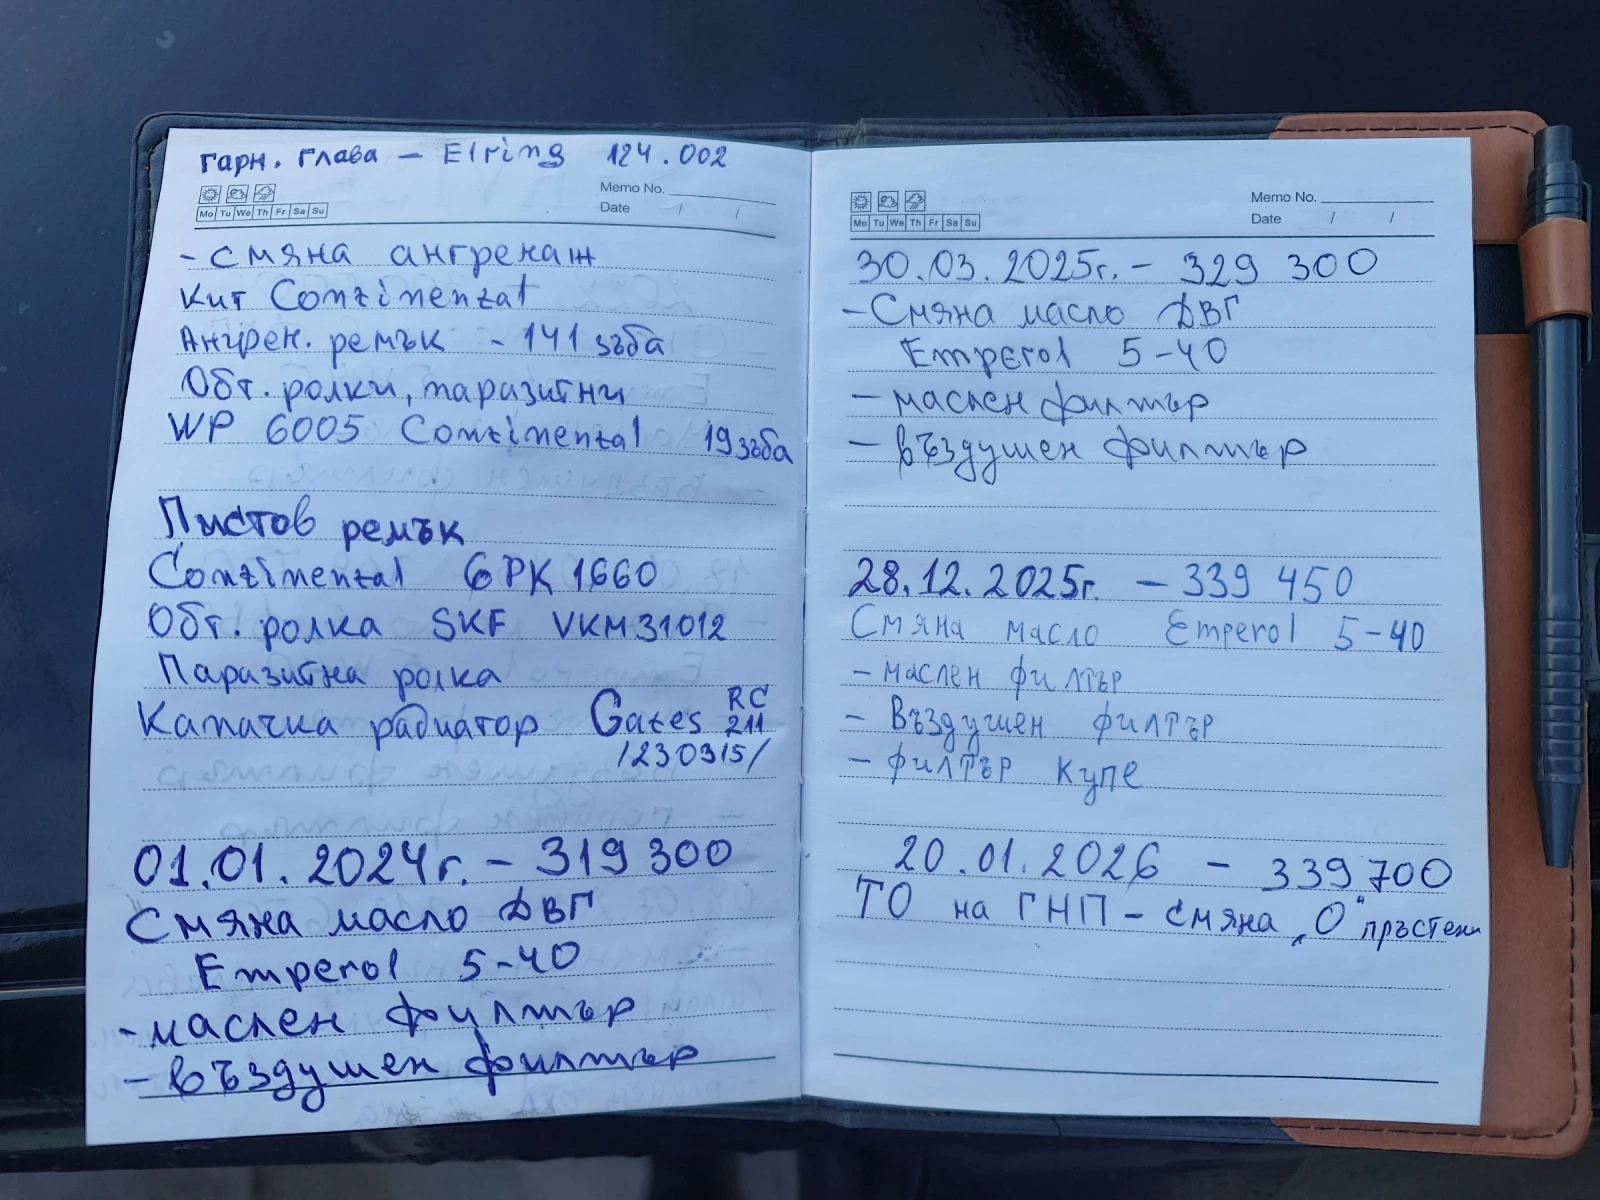 гарн. глава – Elring 124.002
Memo No.
Date / /
Mo Tu We Th Fr Sa Su
- смяна ангренаж
Кит Continental
Ангрен. ремък - 141 зъба
Обт. ролки, паразитни
WP 6005 Continental 19 зъба
Пистов ремък
Continental 6PK 1660
Обт. ролка SKF VKM31012
Паразитна ролка
Капачка радиатор Gates RC 211
/230315/
01.01.2024г. – 319 300
Смяна масло ДВГ
Emperol 5-40
- маслен филтър
- въздушен филтър
Memo No.
Date / /
Mo Tu We Th Fr Sa Su
30.03.2025г. – 329 300
- Смяна масло ДВГ
Emperol 5-40
- маслен филтър
- въздушен филтър
28.12.2025г. – 339 450
Смяна масло Emperol 5-40
- маслен филтър
- Въздушен филтър
- филтър купе
20.01.2026 – 339 700
ТО на ГНП – смяна „О“ пръстени